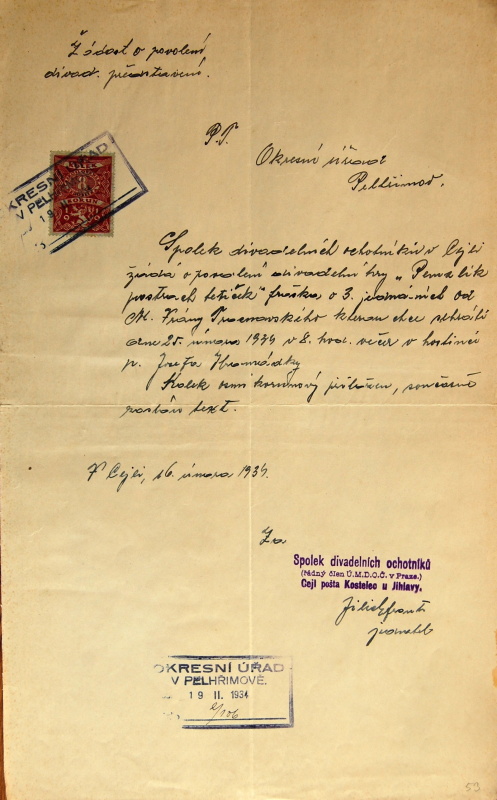 Žádost o povolení
divad. představení.
P.T.
Okresní úřad
Pelhřimov.
OKRESNÍ ÚŘAD
V PELHŘIMOVĚ
19
KOLEK
KORUN
Spolek divadelních ochotníků v Cejli
žádá o povolení divadelní hry „Pemzlík
postrach tetiček" fraška o 3. jednáních od
kterou chce sehráti
dne 25. února 1934 v 8. hod. večer v hostinci
p. Josefa
Kolek osmi korunový přiložen, současně
text.
V Cejli, 16. února 1934.
Za
Spolek divadelních ochotníků
(řádný člen Ú.M.D.O.Č. v Praze.)
Cejl pošta Kostelec u Jihlavy.
jednatel
OKRESNÍ ÚŘAD
V PELHŘIMOVĚ.
19 II. 1934
2/106
53